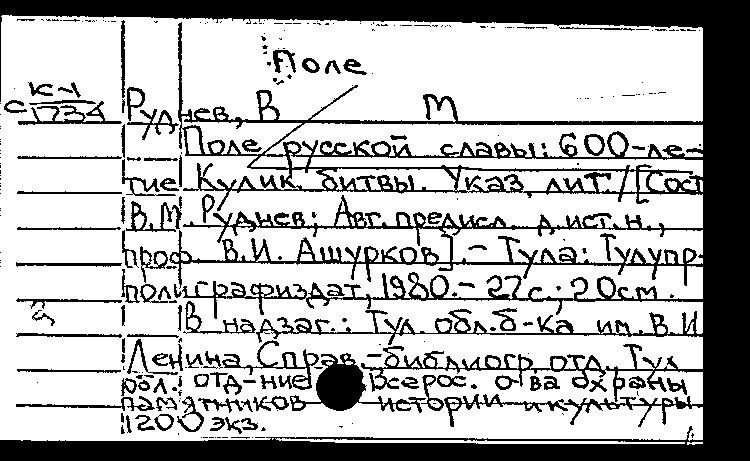 Поле
К-1
с 1734
Руднев, В М
Поле русской славы: 600-ле-
тие Кулик. битвы. Указ. лит. / [Сост.
В.М. Руднев; Авт. предисл. д.ист.н.,
проф. В.И. Ашурков]. - Тула: Тулупр-
полиграфиздат, 1980. - 27с.; 20см.
В надзаг.: Тул. обл. б-ка им. В.И.
Ленина, Справ.-библиогр. отд., Тул.
обл. отд-ние Всерос. о-ва охраны
памятников истории и культуры
1200 экз.